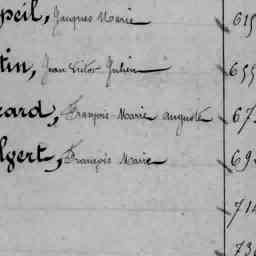 peil, Jacques Marie 619
tin, Jean Victor Julien 655
card, François Marie auguste 67
lgert, François Marie 69
71
73